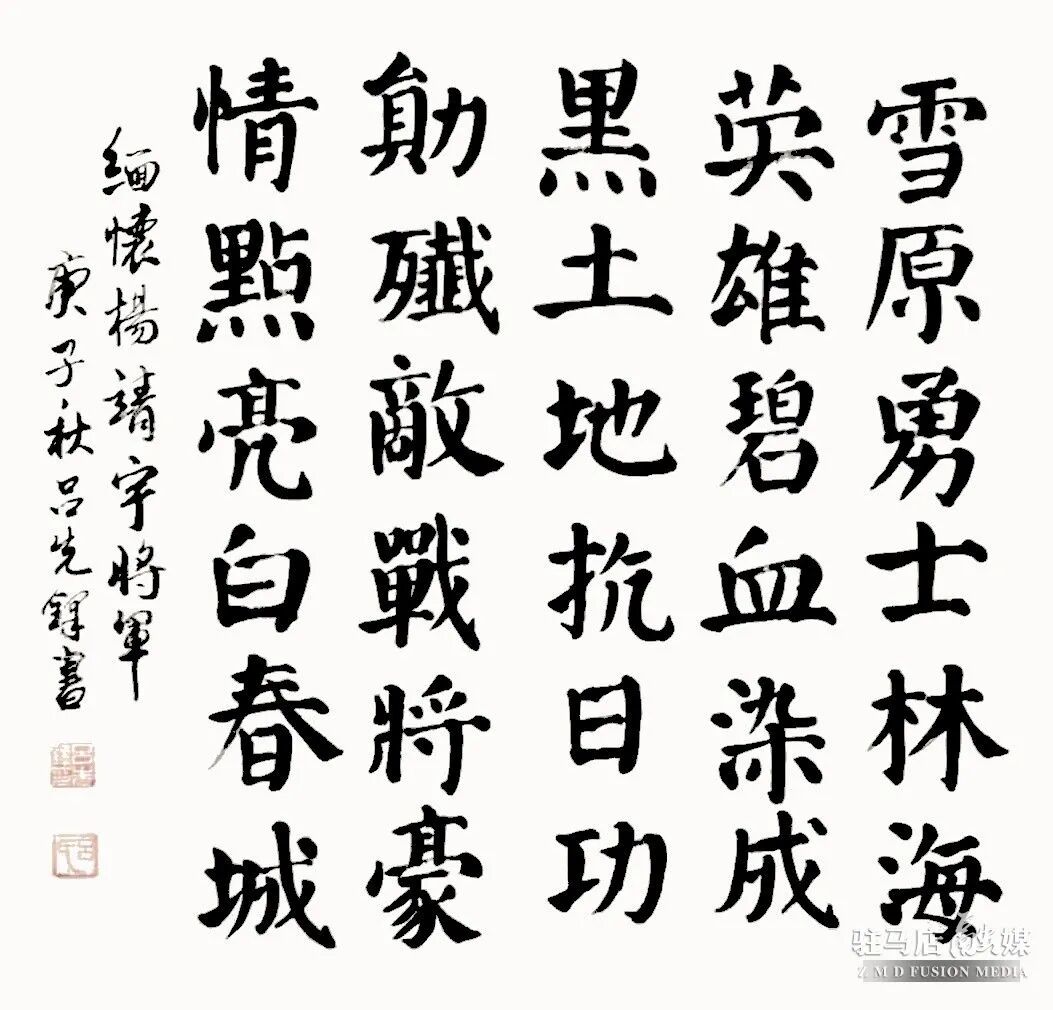 雪原勇士林海
英雄碧血染成
黑土地抗日功
勛殲敵戰將豪
情點亮白春城
緬懷楊靖宇將軍
庚子秋吕先鐸書
驻马店融媒
ZMD FUSION MEDIA